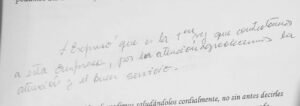 Expuso que es la 1era vez que contratamos
a esta empresa, por la atención agradecemos la
atención y el buen servicio.
saludándoles cordialmente, no sin antes decirles